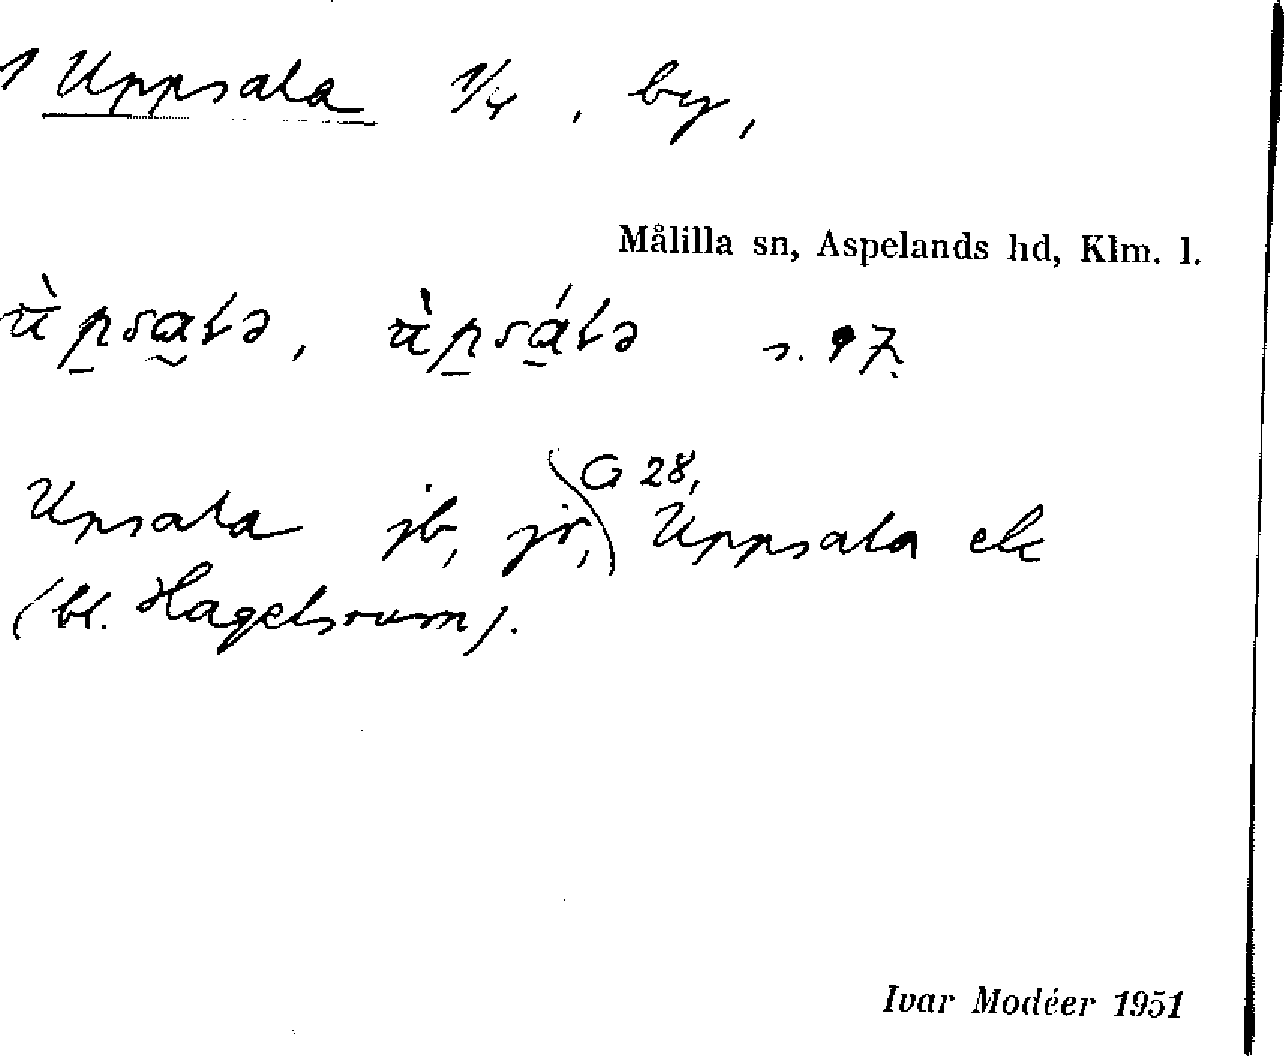 1 Uppsala 1/4, by,
Målilla sn, Aspelands hd, Klm. l.
s. 97.
Upsala jb, jr, G 28, Uppsala ek
(bl. Hagelsrum).
Ivar Modéer 1951